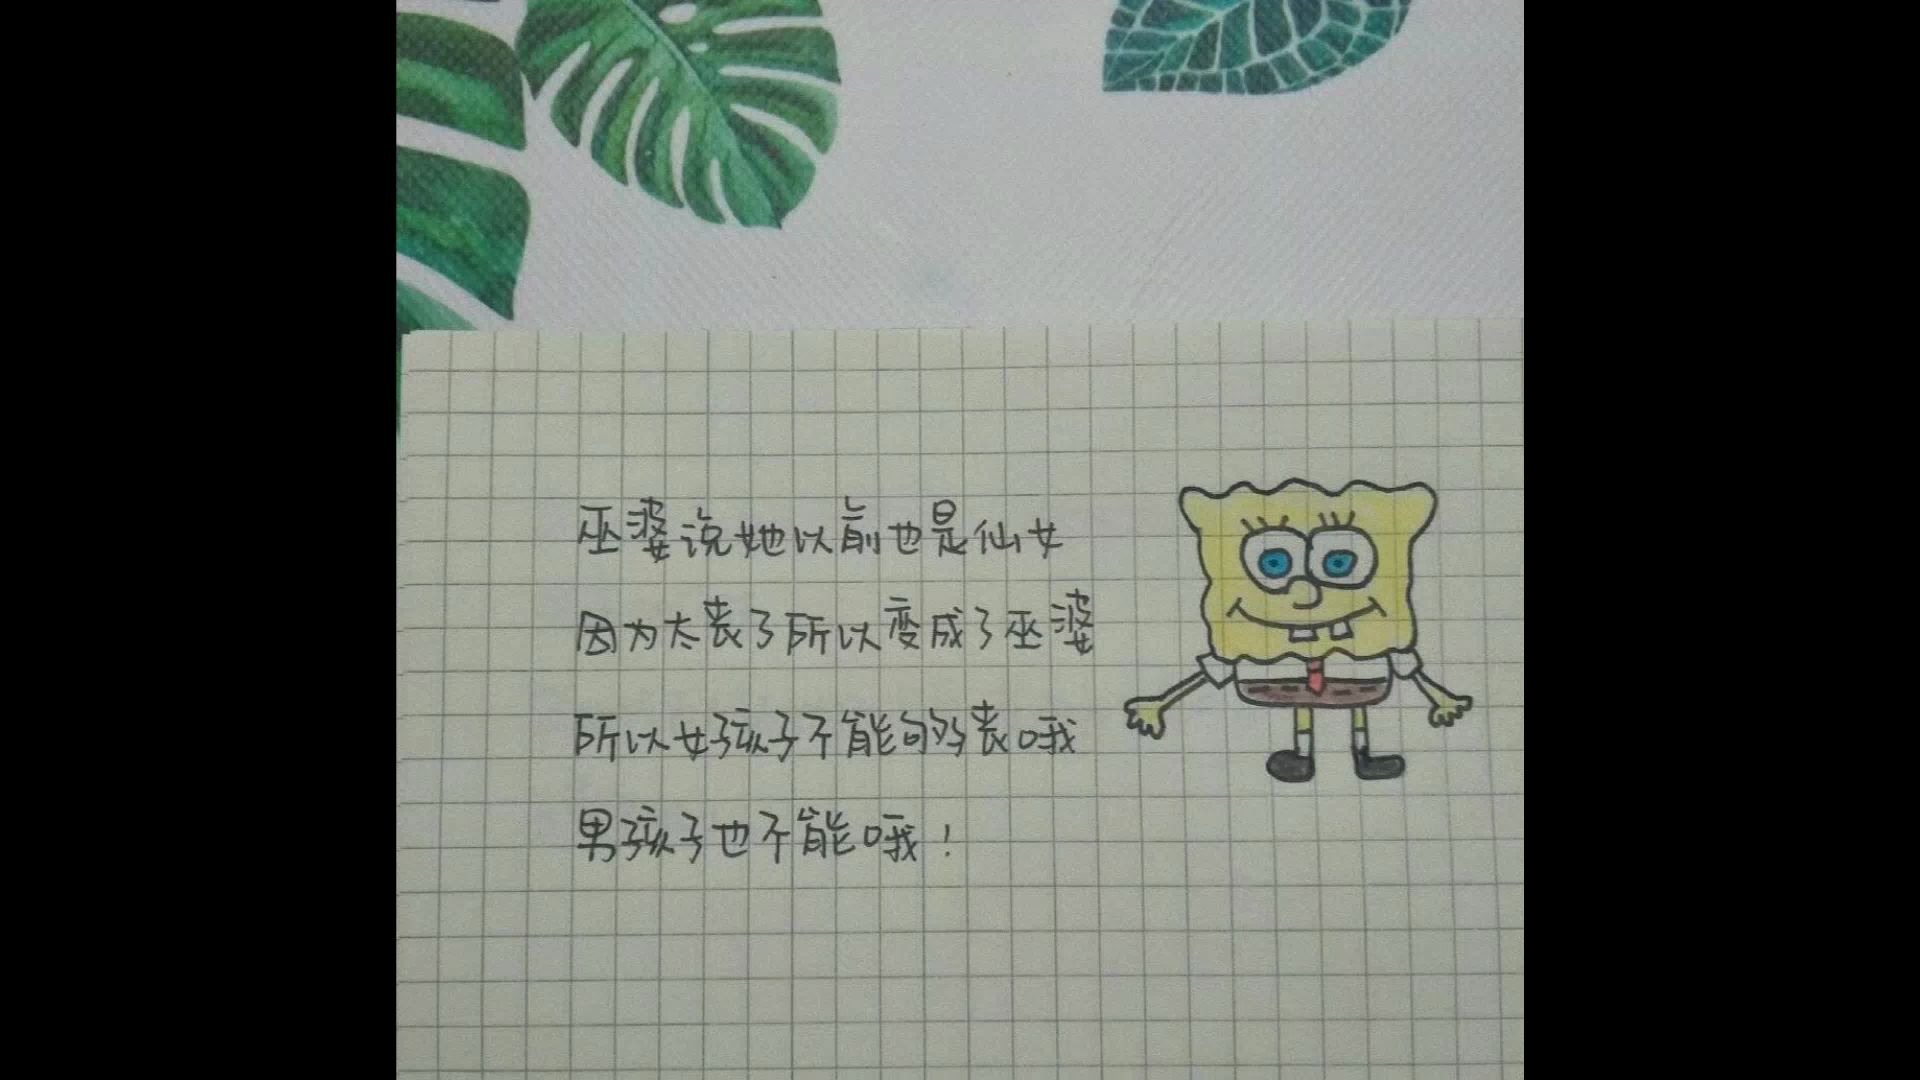 巫婆说她以前也是仙女
因为太丧了所以变成了巫婆
所以女孩子不能够丧哦
男孩子也不能哦！